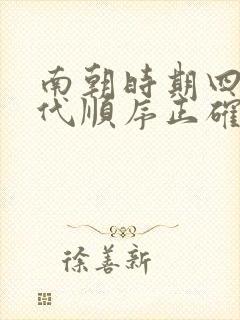 南朝時期四
代順序正確
徐善新